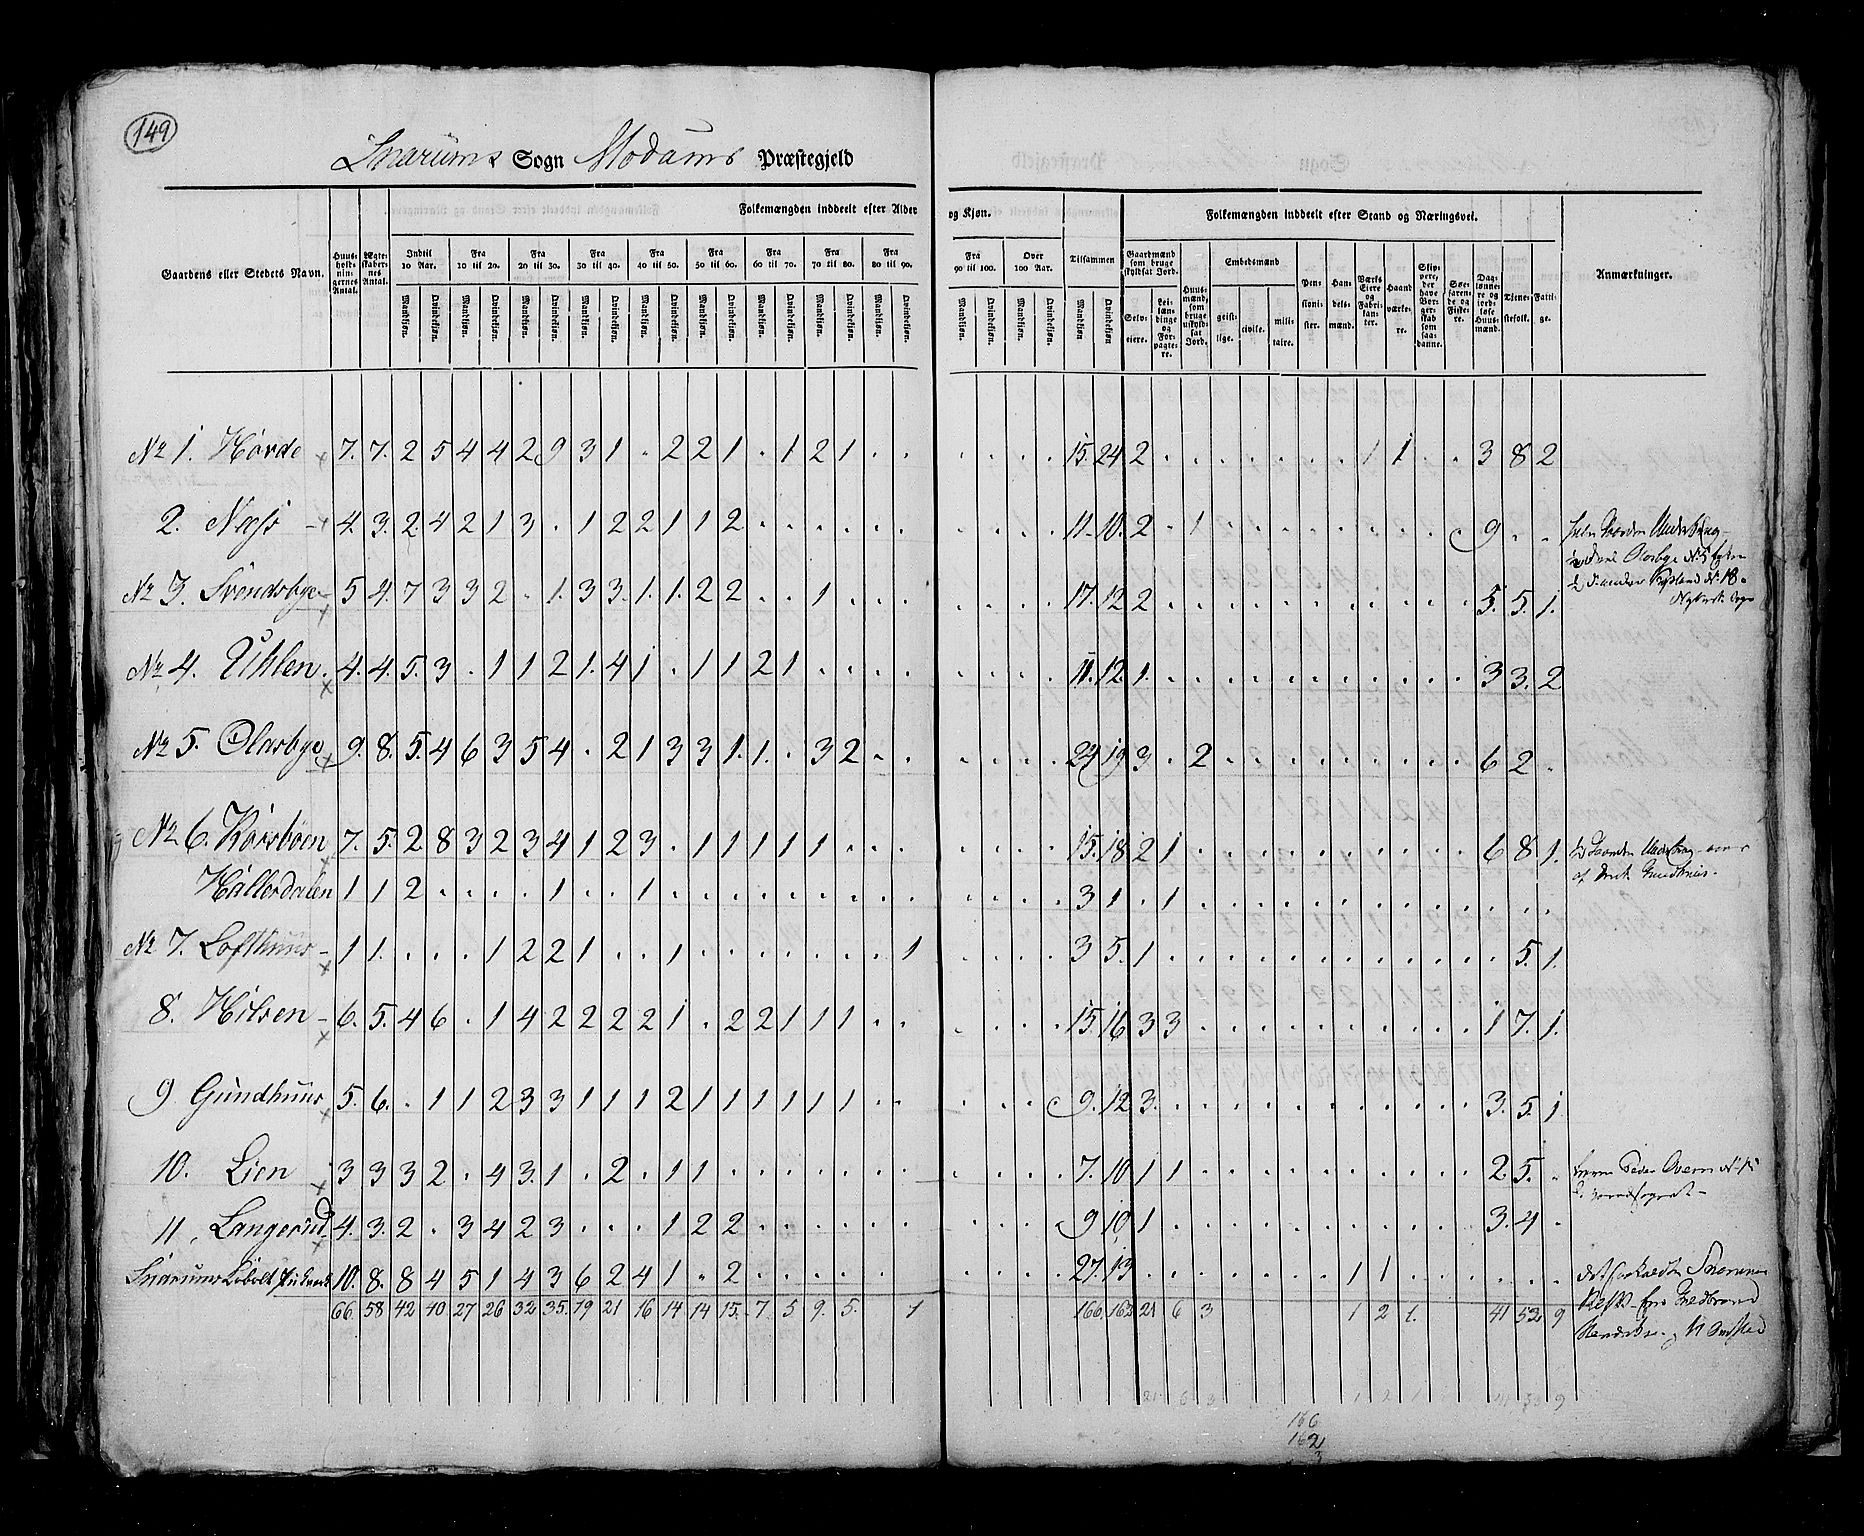 149
Snarums Sogn Modums Præstegjeld
Gaardens eller Stedets Navn.
Huus-holdningernes Antal.
Ægteskabernes Antal.
Folkemængden inddeelt efter Alder og Kjøn.
Indtil 10 Aar.
Fra 10 til 20.
Fra 20 til 30.
Fra 30 til 40.
Fra 40 til 50.
Fra 50 til 60.
Fra 60 til 70.
Fra 70 til 80.
Fra 80 til 90.
Fra 90 til 100.
Over 100 Aar.
Tilsammen
Mandkjøn. Qvindekjøn. Mandkjøn. Qvindekjøn. Mandkjøn. Qvindekjøn. Mandkjøn. Qvindekjøn. Mandkjøn. Qvindekjøn. Mandkjøn. Qvindekjøn. Mandkjøn. Qvindekjøn. Mandkjøn. Qvindekjøn. Mandkjøn. Qvindekjøn. Mandkjøn. Qvindekjøn. Mandkjøn. Qvindekjøn. Mandkjøn. Qvindekjøn.
Folkemængden inddeelt efter Stand og Næringsvei.
Gaardmænd som bruge skyldsat Jord.
Selveiere.
Leilændinge og Forpagtere.
Huusmænd, som bruge uskyldsat Jord.
Embedsmænd
geistlige.
civile.
militaire.
Pensionister.
Handelsmænd.
Værks Eiere og Fabrikanter.
Haandværkere.
Strivere, der have Borgerskab som saadanne.
Søefarende og Fiskere.
Daglønnere og jordløse Huusmænd.
Tjenestefolk.
Fattige.
Anmærkninger.
No 1. Hovde 7. 7. 2 5 4 4 2 9 3 1 . 2 2 1 . 1 2 1 . . . . . . 15. 24 2 . . . . . . . 1 1 . . 3 8 2
2. Næss 4 3. 2 4 2 1 3 . 1 2 2 1 1 2 . . . . . . . . . . 11. 10. 2 . 1 . . . . . . . . . 9 . .
No 3. Svendsbye 5 4. 7 3 3 2 . 1. 3 3. 1. 1. 2 2 . . 1 . . . . . . . 17. 12 2 . . . . . . . . . . . 5. 5. 1.
No 4. Uhlen 4. 4. 5. 3 . 1 1 2 1. 4 1 . 1 1 2 1 . . . . . . . . 11. 12. 1. . . . . . . . . . . . 3 3. 2
No 5. Olasbye 9. 8. 5. 4 6 3 5 4 . 2 1 3 3 1. 1. . 3 2 . . . . . . 24 19 3 . 2 . . . . . . . . . 6 2 .
No 6. Korsbøen 7. 5. 2 8 3 2 3 4 1 2 3 . 1 1 1 1 1 . . . . . . . 15. 18 2 1 . . . . . . . . . . 6 8 1.
Hallerdalen 1 1 2 . . . . 1 . . 1 . . . . . . . . . . . . . 3 1 . 1 . . . . . . . . . . . . .
No 7. Lofthuus 1 1. . . . 1 2 2 1 . . 1 . . . . . . . 1 . . . . 3 5. 1 . . . . . . . . . . . . 5. 1.
8. Hilsen 6. 5. 4 6 . 1 4 2 2 2 2 1 . 2 2 1 1 1 . . . . . . 15. 16 3 3 . . . . . . . . . . 1 7. 1.
9 Gundhuus 5. 6. . 1 1 2 3 3 1 1 1 2 1 1 1 1 1 1 . . . . . . 9. 12 3. . . . . . . . . . . . 3. 5. 1
10. Lien 3 3 3 2 . 4 3. 1 . 2 . 1 1 . . . . . . . . . . . 7. 10 1 1 . . . . . . . . . . 2 5. .
11. Langerud 4. 3. 2 . 3 4 2 3 . . . 1 2 2 . . . . . . . . . . 9 10 1 . . . . . . . . . . . 3. 4 .
Snarums Kobolt 10. 8. 8 4 5 1 4 3 6 2 4 1 . 2 . . . . . . . . . . 27. 13 . . . . . . . . 1 1 . . . . .
66. 58 42 40 27 26 32 35. 19 21 16 14 14 15. 7 5 9. 5. 1 166. 162 21 6 3 1 2 1. 41 53 9
21 6 3 1 2 1 41 53 9
166
162
3